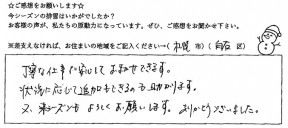 ☆ご感想をお願いします☆
今シーズンの排雪はいかがでしたか?
お客様の声が、私たちの原動力になっています。ぜひ、ご感想をお聞かせ下さい。
※差支えなければ、お住まいの地域をご記入ください→( 札幌 市)( 白石 区)
丁寧な仕事で安心しておまかせできます。
状況に応じて追加もできるのも助かります。
又、来シーズンもよろしくお願いします。ありがとうございました。